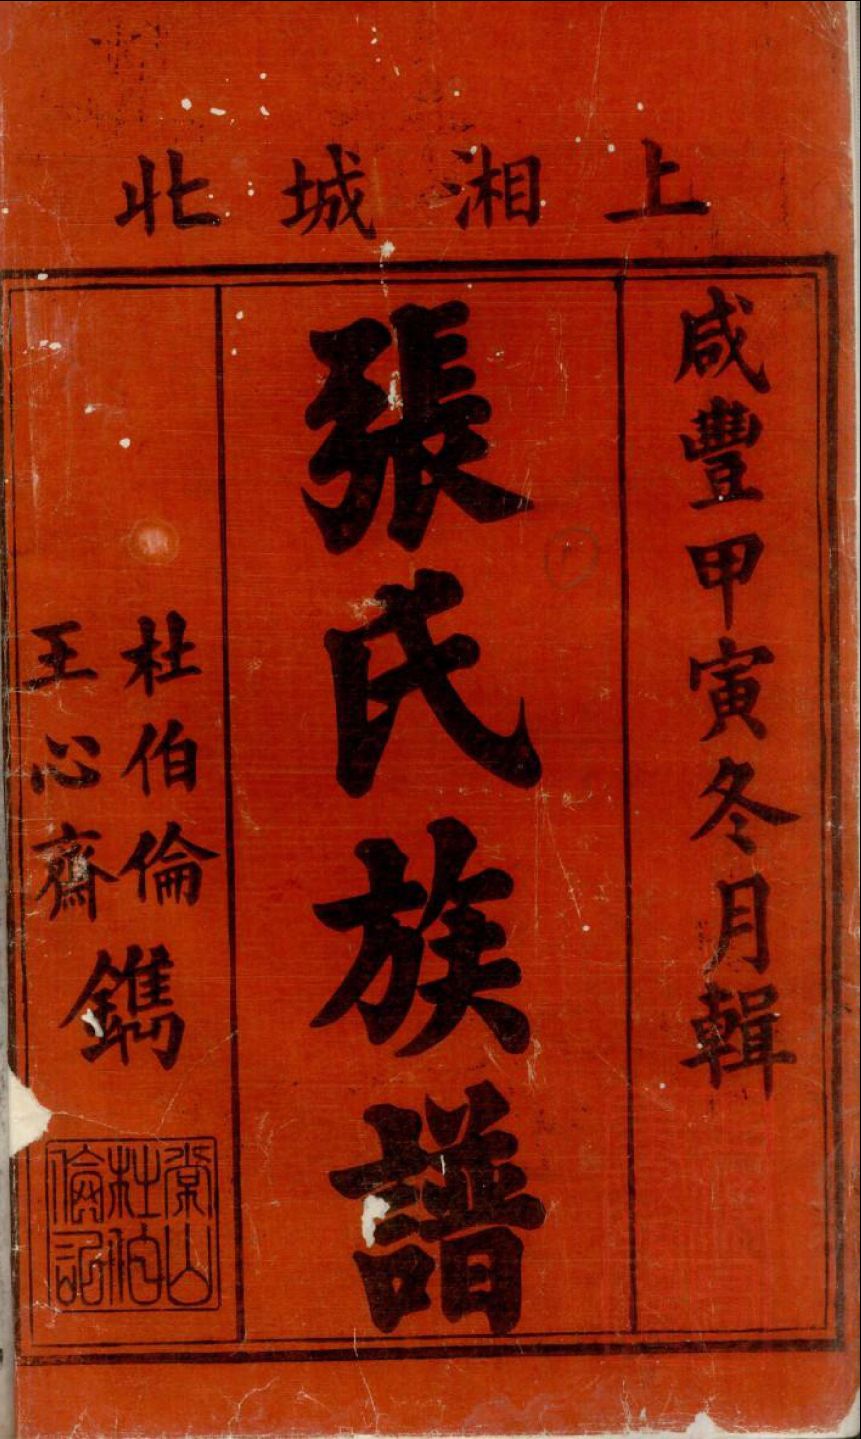 上湘城北
咸豐甲寅冬月輯
張氏族譜
杜伯倫
王心齋
鐫
棠山
杜伯
倫記